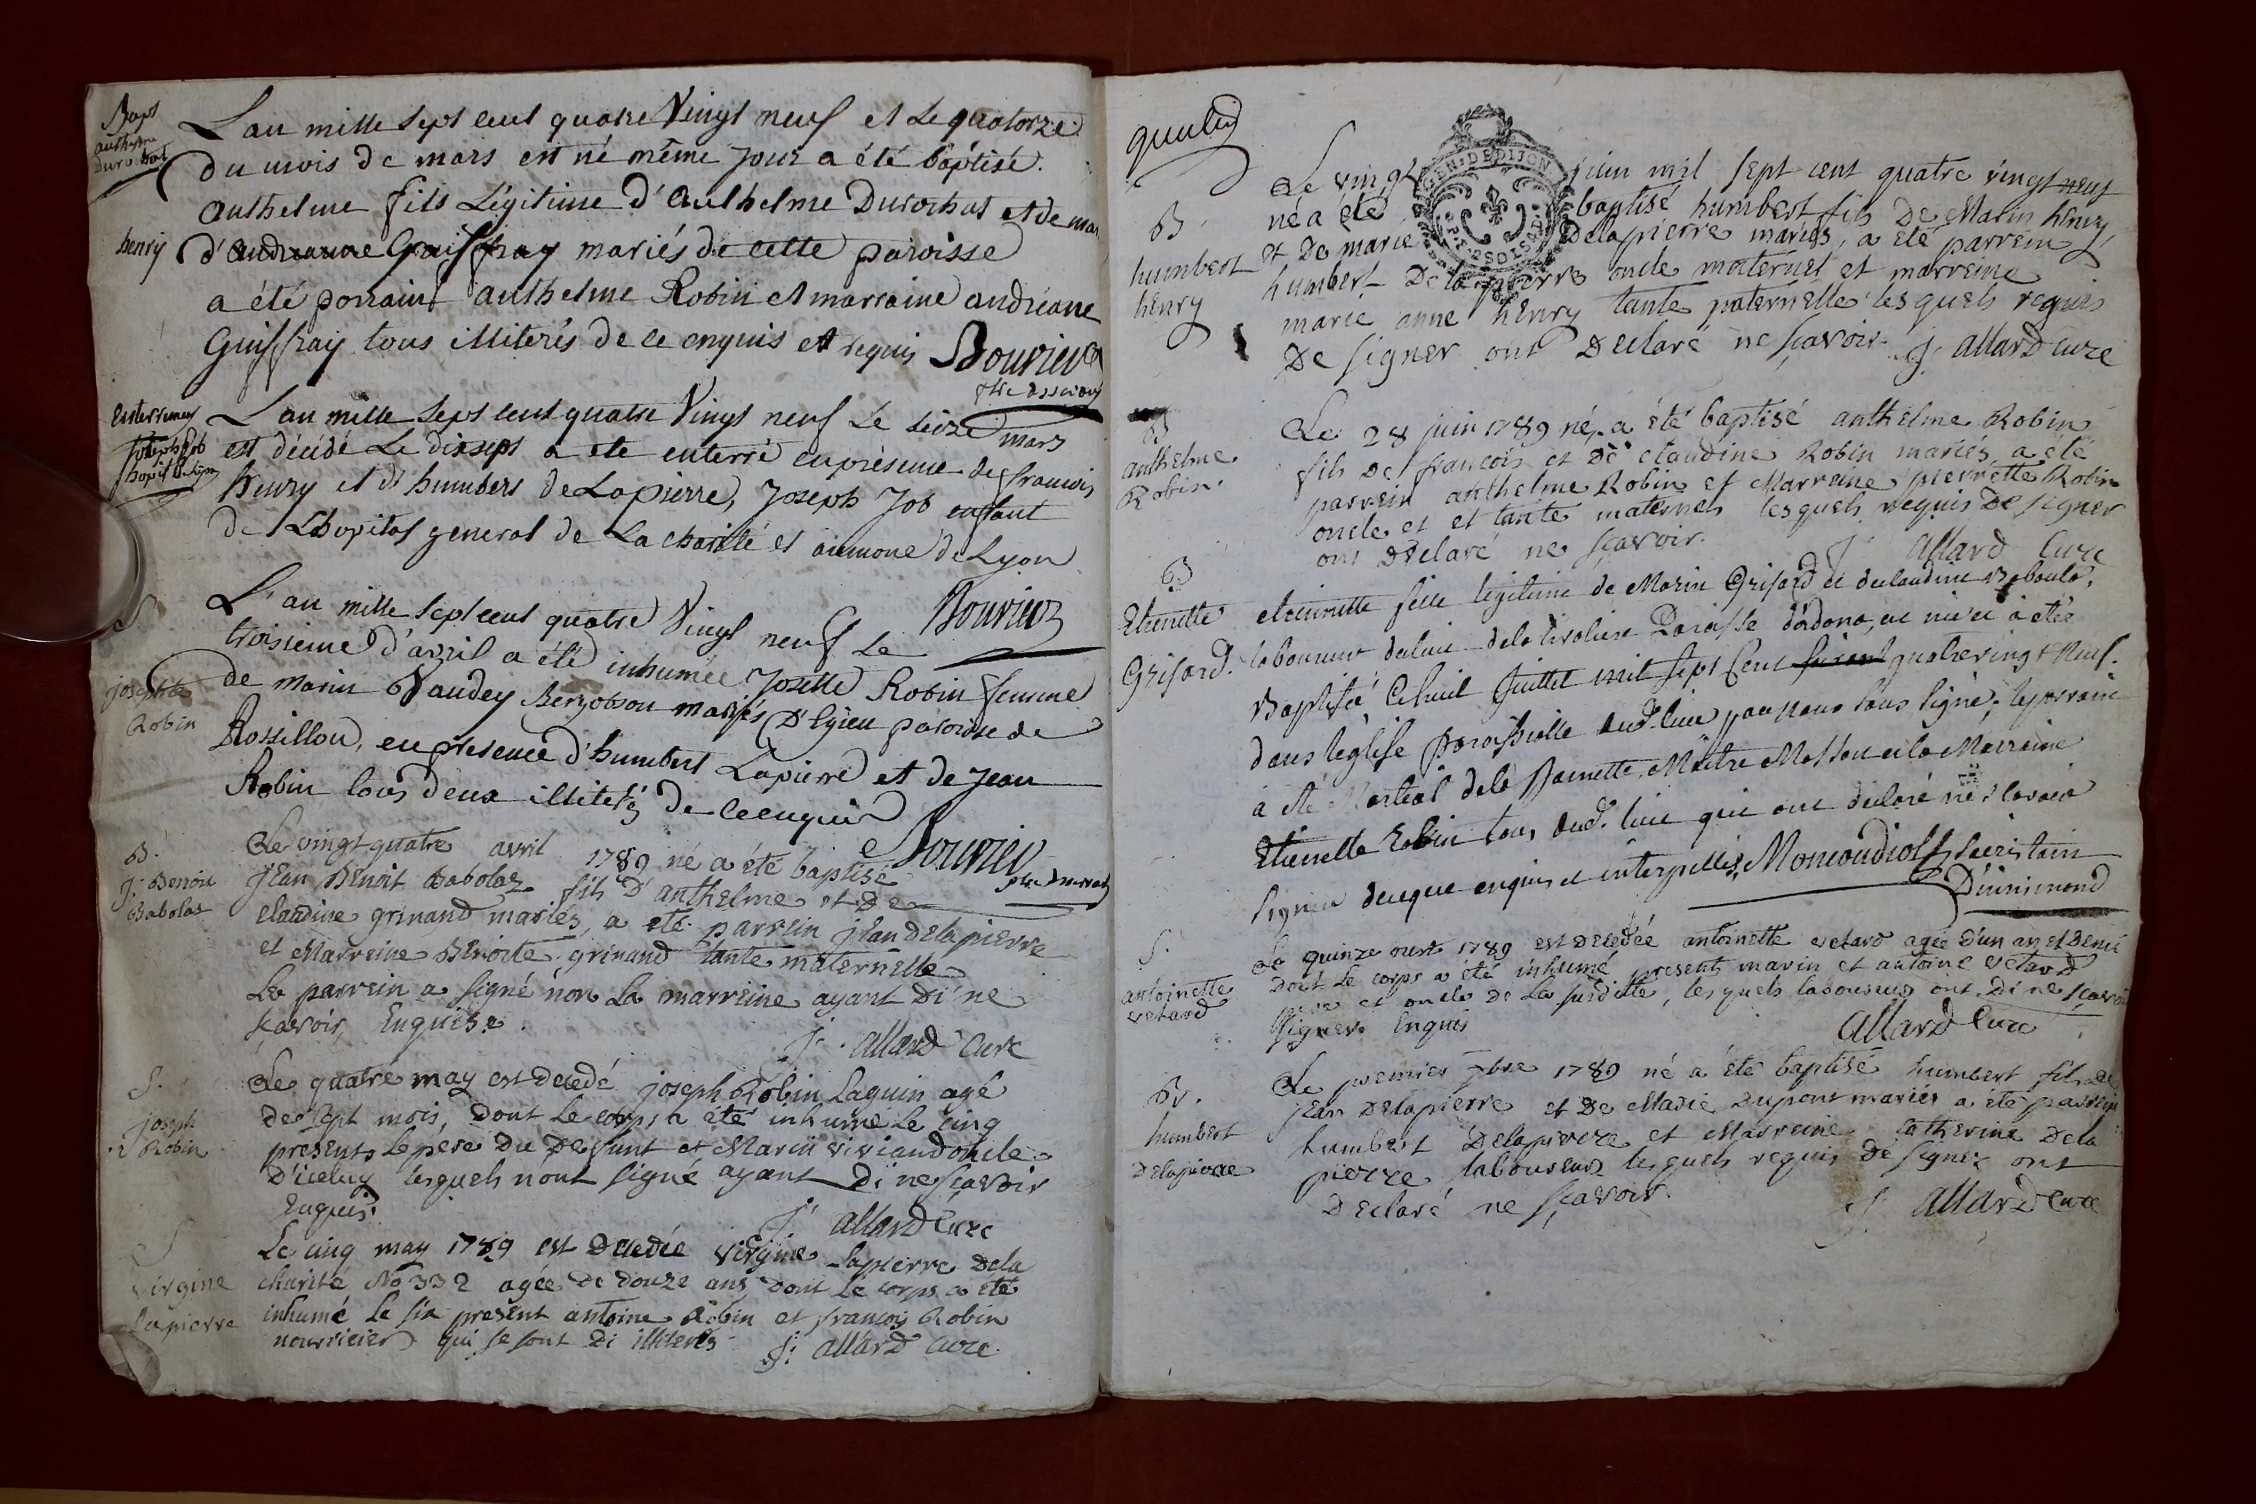 Baps
anthelme
Durochat
L'an mille Sept cent quatre Vingt neuf et Le quatorze
du mois de mars est né même Jour a été baptisé
Anthelme fils Légitime d'Anthelme Durochat et de
henry
d'andreanne Guiffray mariés de cette paroisse
a été parrain anthelme Robin et marraine andréane
Guiffray tous illiterés de ce enquis et requis Bouvier
Enterrement
Joseph Job
L'an mille Sept cent quatre Vingt neuf Le Seize mars
est décédé Le dix sept a ete enterré en présence de francois
henry et d'humbert de Lapierre, Joseph Job enfant
de L'hopital general de La charité et aumone de Lyon
Bouvier
S.
josephte
Robin
L'an mille sept cent quatre Vingt neuf Le
troisieme d'avril a été inhumée Josette Robin femme
de marin Vaudey mariés D'Egieu paroisse de
Rossillon, en presence d'humbert Lapierre et de Jean
Robin tous deux illiterés de ce enquis
Bouvier
B.
J: Benoit
Babolat
Le vingt quatre avril 1789 né a été baptisé
Jean Benoit Babolat fils d'anthelme et De
claudine grinand mariés, a été parrein jean delapierre
et Marreine Benoite grinand tante maternelle
Le parrein a signé non La marreine ayant di ne
sçavoir, Enquise.
J. allard Curé
S.
joseph
Robin
Le quatre may est decedé joseph Robin Laquin agé
de sept mois, dont Le corps a été inhumé Le cinq
presents Le pere Du Defunt et Marin viviand oncle
D'iceluy lesquels n'ont signé ayant Di ne sçavoir
Enquis.
J. allard Curé
S
virgine
Lapierre
Le cinq may 1789 est Decedée Virgine Lapierre Dela
charité No 332 agée De Douze ans, Dont Le corps a été
inhumé Le six present antoine Robin et francois Robin
nourricier qui se sont Di illiterés
J: allard Curé
GEN. DE DIJON
B.
humbert
henry
Le vingt juin mil sept cent quatre vingt neuf
né a été baptisé humbert fils De Marin henry
et De marie Delapierre mariés, a été parrein
humbert De la pierre oncle maternel et marreine
marie anne henry tante paternelle lesquels requis
De signer ont Declaré ne sçavoir. J. allard Curé
B
anthelme
Robin.
Le 28 juin 1789 né a été baptisé anthelme Robin
fils De francois et De claudine Robin mariés a été
parrein anthelme Robin et Marreine pierrette Robin
oncle et et tante maternels lesquels requis De signer
ont Declaré ne sçavoir.
J. allard Curé
B
Etienette
Grisard.
etiennette fille légitime de Marin Grisard et de claudine Baboulat,
laboureur paroisse d'ordona, et a été
Baptisée Cehuit Juillet mil sept cent quatre vingt Neuf.
dans l'église paroissialle dud. lieu par nous sous signé; le parrain
à été Martial dela Maitre Masson et la Marraine
Etienette Robin tous dud. lieu qui ont declaré ne scavoir
signer dece que enquis et interpellés. Sacristain
D'innimond
S.
antoinette
vetard
Le quinze oust 1789 est Decedée antoinette vetard agée D'un an et Demi
Dont Le corps a été inhumé presents marin et antoine vetard
pere et oncle De La susditte, lesquels laboureurs ont Di ne sçavoir
signer. Enquis
allard Curé
B.
humbert
Delapierre
Le premier 7bre 1789 né a été baptisé humbert fils de
jean Delapierre et De Marie Dupont mariés a été parrein
humbert Delapierre et Marreine Catherine Dela
pierre laboureurs lesquels requis De signer ont
Declaré ne sçavoir.
J. allard Curé